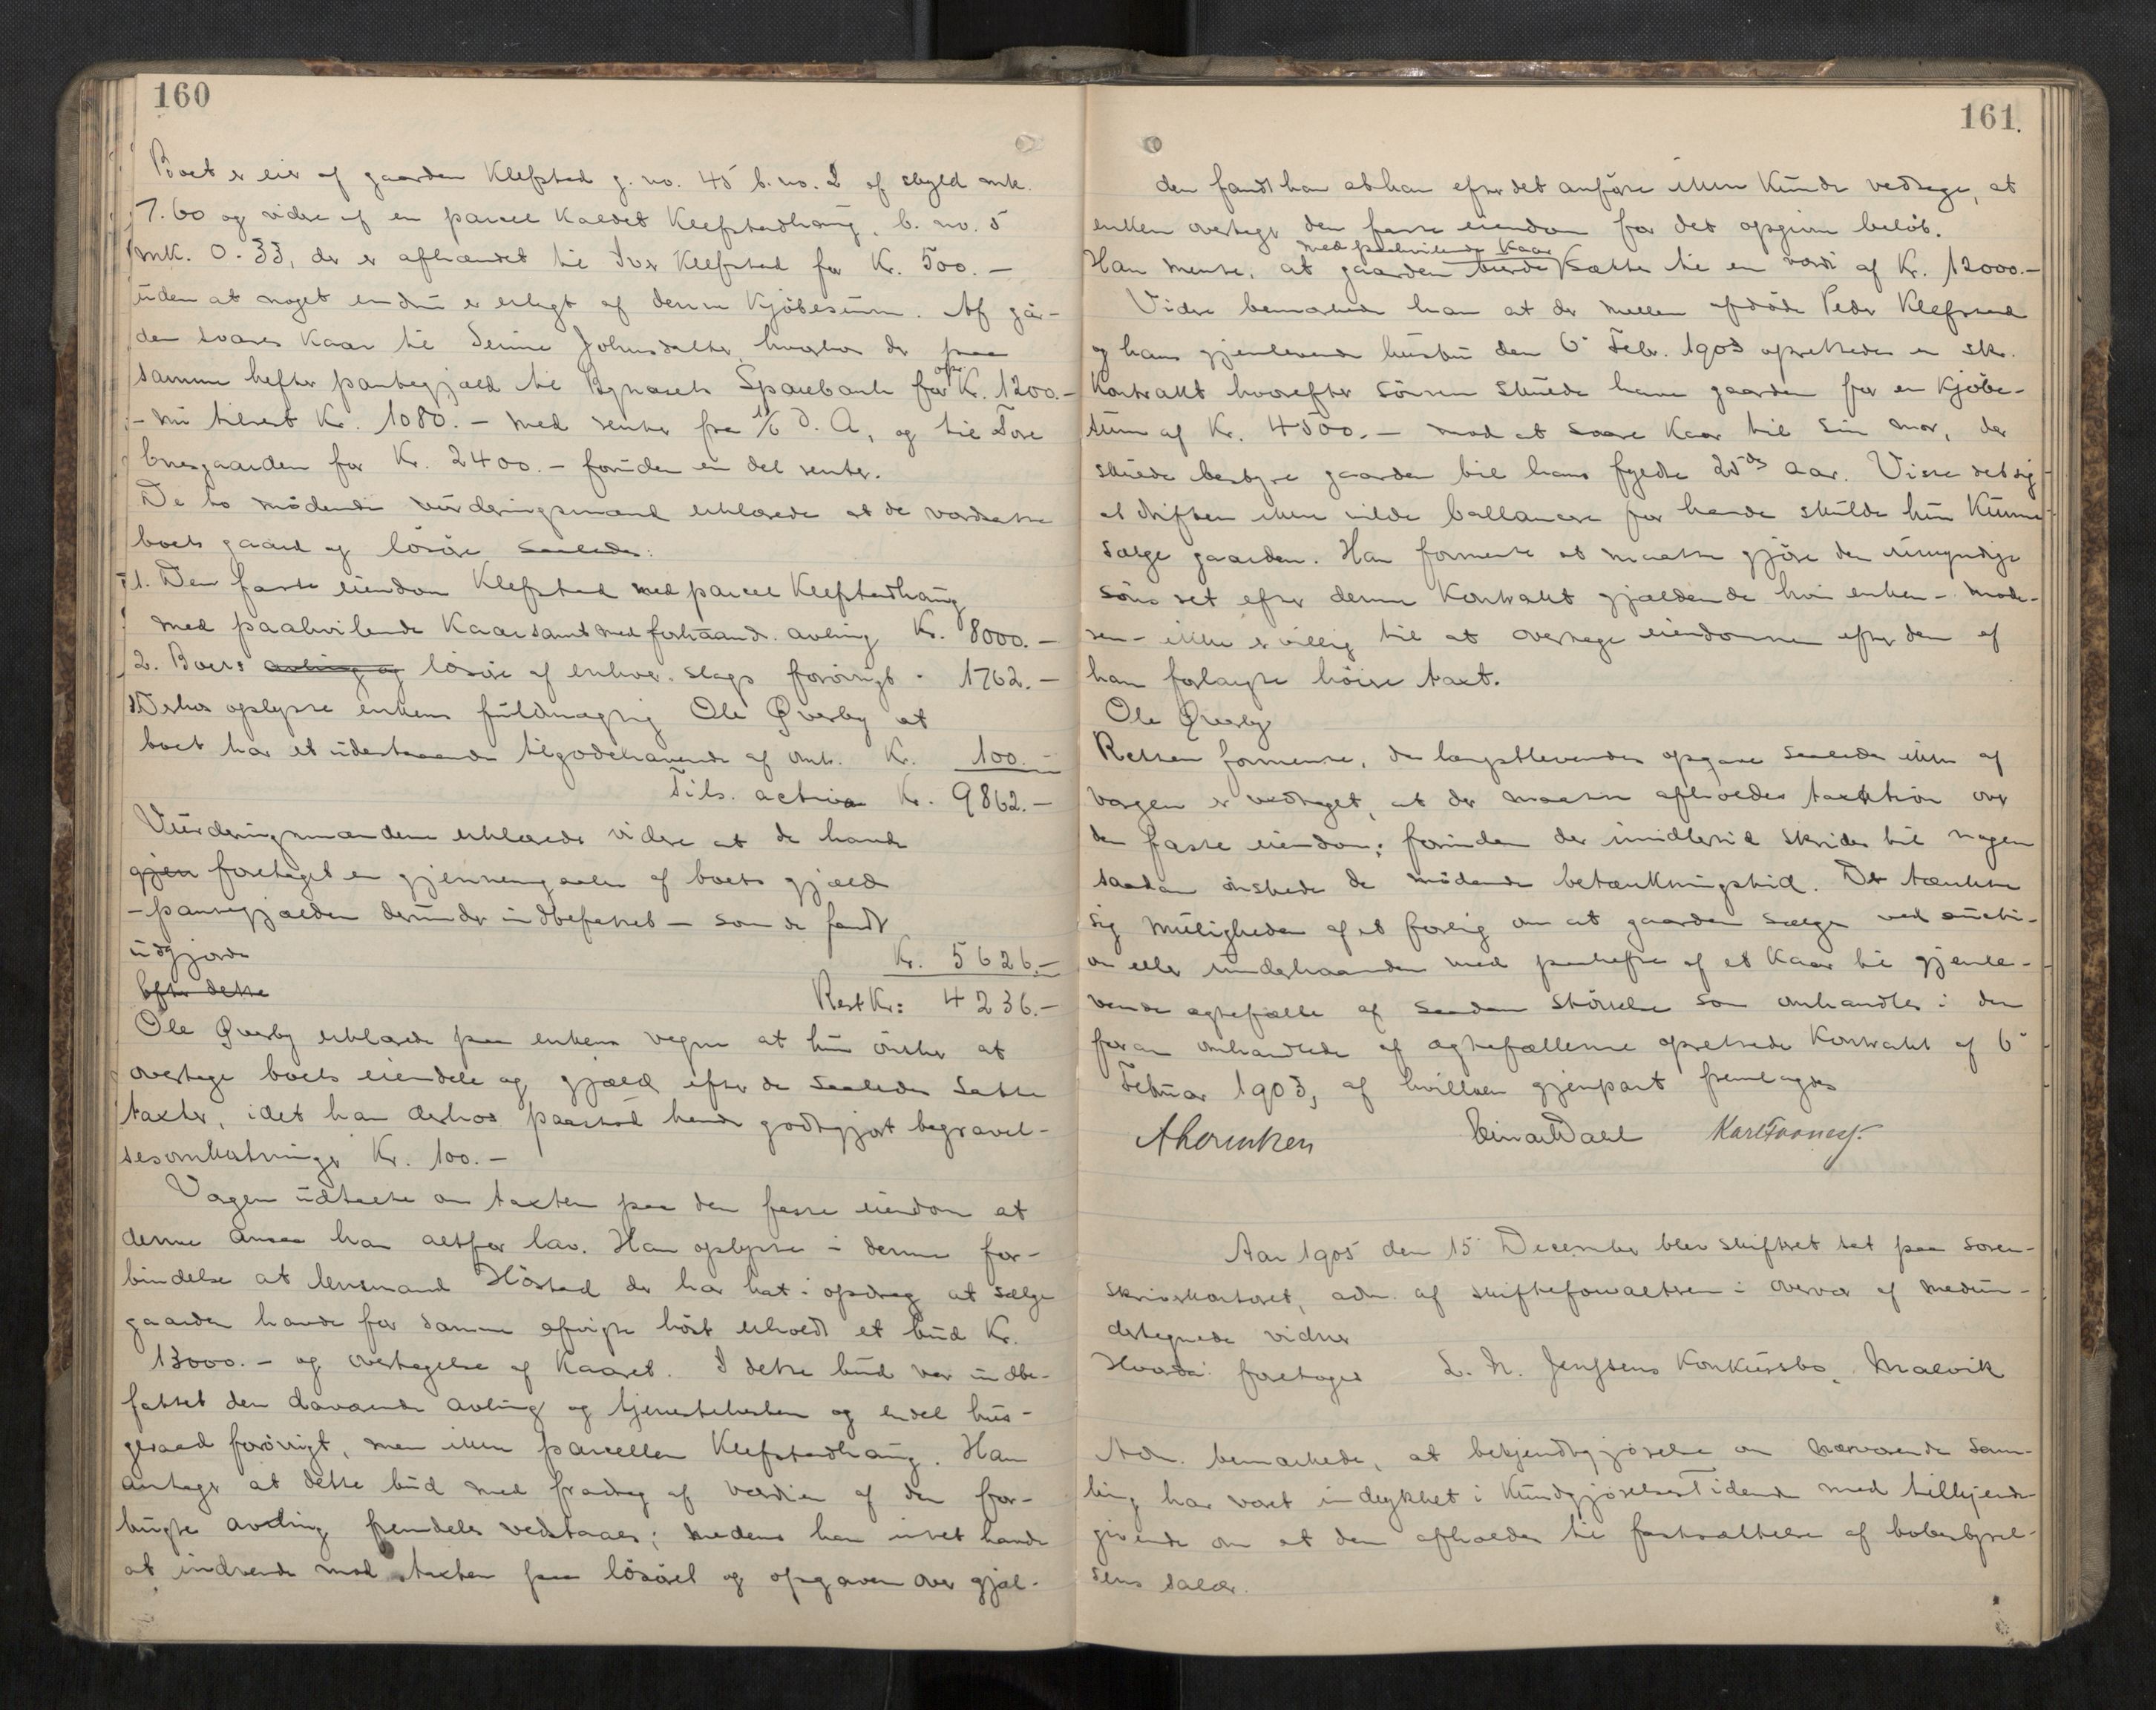 160
Boet er eier af gaarden Klefstad g. no. 45 b. no. 2 af skyld mk.
7.60 og videre af en parcel kaldet Klefstadhaug, b. no. 5
mk. 0.33, der er afhændet til Iver Klefstad for Kr. 500.-
uden at noget endnu er erlagt af denne kjöbesum. Af går-
den svares kaar til Johnsdatter, hvorhos der paa
samme hefter pantegjæld til Bynesets Sparebank for opr. Kr. 1200.-
- nu tilrest Kr. 1080.- med renter fra 1/6 d. A, og til Tore
bnesgaarden for Kr. 2400.- foruden en del renter.
De to mödende vurderingsmænd erklærede at de værdsatte
boets gaard og lösöre saaledes:
1. Den faste eiendom Klefstad med parcel Klefstadhaug
med paahvilende kaar samt med forhaand. avling Kr. 8000.-
2. Boets avling og lösöre af enhver slags forövrigt - 1762.-
Derhos oplyste enkens fuldmægtig Ole Øverby at
boet har et udestaaende tilgodehavende af omtr. Kr. 100.-
Tils. activa Kr. 9862.-
Vurderingsmændene erklærede videre at de havde
gjen foretaget en gjennemgaaelse af boets gjæld
- pantegjælden derunder indbefattet - som de fandt
udgjorde Kr. 5626.-
Efter dette Rest Kr: 4236.-
Ole Øverby erklærede paa enkens vegne at hun önsker at
overtage boets eiendele og gjæld efter de saaledes satte
taxter, idet han derhos paastod hende godtgjort begravel-
sesomkostninger Kr. 100.-
Værgen udtalte om taxten paa den faste eiendom at
denne ansaa han altfor lav. Han oplyste i denne for-
bindelse at lensmand Höstad der har hat i opdrag at sælge
gaarden havde for samme afvigte höst erholdt et bud Kr.
13000.- og overtagelse af kaaret. I dette bud var indbe-
fattet den daværende avling og tjenestehesten og endel hus-
geraad forövrigt, men ikke parcellen Klefstadhaug. Han
antager at dette bud med fradrag af værdien af den for-
brugte avling fremdeles vedstaaes; medens han intet havde
at indvende mod taxten paa lösöret og opgaven over gjæl-
161.
den fandt han at han efter det anførte ikke kunde vedtage, at
enken overtager den faste eiendom for det opgivne belöb.
med paahvilende kaar
Han mente, at gaarden burde sættes til en værdi af Kr. 12000.-
Videre bemærkede han at der mellem afdöde Peder Klefstad
og hans gjenlevende hustru den 6' Febr. 1903 oprettedes en skr.
kontrakt hvorefter sönnen skulde have gaarden for en kjöbe-
sum af Kr. 4500.- mod at svare kaar til sin mor, der
skulde bestyre gaarden til hans fyldte 25de aar. Viste det sig
at driften ikke vilde ballancere for hende skulde hun kunne
sælge gaarden. Han formente at maatte gjöre den umyndige
söns ret efter denne kontrakt gjældende hvis enken - mode-
ren - ikke er villig til at overtage eiendommen efter den af
ham forlangte höiere taxt.
Ole Øverby
Retten formente, da længstlevendes opgave saaledes ikke af
værgen er vedtaget, at der maatte afholdes taxktion over
den faste eiendom; forinden der imidlertid skrides til nogen
saadan önskede de mödende betænkningstid. De tænkte
sig muligheden af et forlig om at gaarden sælges ved aukti-
on eller underhaanden med paahefte af et kaar til gjenle-
vende ægtefælle af saadan störrelse som omhandles i den
foran omhandlede af ægtefællerne oprettede kontrakt af 6'
Februar 1903, af hvilken gjenpart fremlagdes
Einar Dahl
Aar 1905 den 15' December blev skifteret sat paa soren-
skriverkontoret, adm. af skifteforvalteren i overvær af medun-
dertegnede vidner
Hvorda: foretoges L. N. Jenssens Konkursbo, Malvik
Adm. bemærkede, at bekjendtgjörelse om nærværende sam-
ling har været indrykket i Kundgjörelses Tidende med tilkjende-
givende om at den afholdes til fastsættelse af bobestyrel-
sens salær.